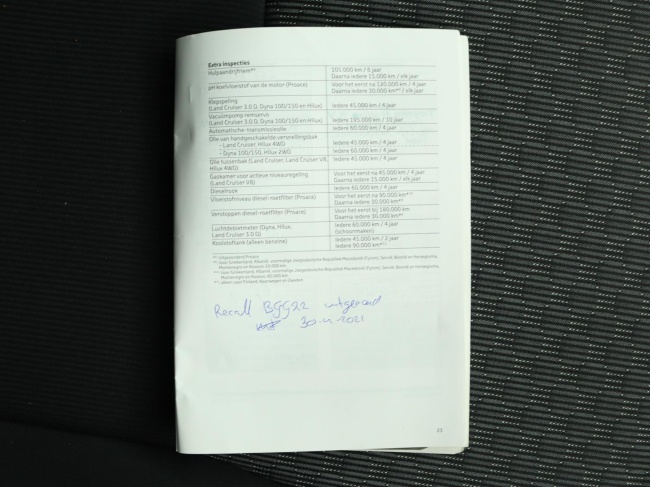 Extra inspecties
Hulpaandrijfriem*¹ 105.000 km / 6 jaar
Daarna iedere 15.000 km / elk jaar
pH koelvloeistof van de motor (Proace) Voor het eerst na 120.000 km / 4 jaar
Daarna iedere 30.000 km*² / elk jaar
Klepspeling
(Land Cruiser 3.0 D, Dyna 100/150 en Hilux) Iedere 45.000 km / 4 jaar
Vacuümpomp remservo
(Land Cruiser 3.0 D, Dyna 100/150 en Hilux) Iedere 195.000 km / 10 jaar
Automatische-transmissieolie Iedere 60.000 km / 4 jaar
Olie van handgeschakelde versnellingsbak
- Land Cruiser, Hilux 4WD Iedere 45.000 km / 4 jaar
- Dyna 100/150, Hilux 2WD Iedere 60.000 km / 4 jaar
Olie tussenbak (Land Cruiser, Land Cruiser V8,
Hilux 4WD) Iedere 45.000 km / 4 jaar
Gaskamer voor actieve niveauregeling
(Land Cruiser V8) Voor het eerst na 45.000 km / 4 jaar
Daarna iedere 15.000 km / elk jaar
Dieselrook Iedere 60.000 km / 4 jaar
Vloeistofniveau diesel-roetfilter (Proace) Voor het eerst na 90.000 km
Daarna iedere 30.000 km
Verstoppen diesel-roetfilter (Proace) Voor het eerst bij 180.000 km
Daarna iedere 30.000 km
Luchtdebietmeter (Dyna, Hilux,
Land Cruiser 3.0 D) Iedere 60.000 km / 4 jaar
(schoonmaken)
Koolstoftank (alleen benzine) Iedere 45.000 km / 3 jaar
Iedere 90.000 km
uitgezonderd Proace
alleen voor Finland, Noorwegen en Zweden
Recall
30-11-2021
23